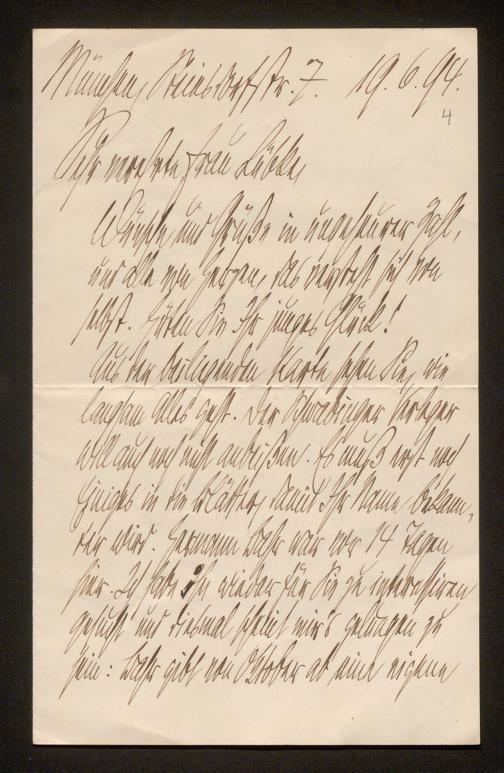 München, Steinsdorfstr. 7. 19.6.94.
4
Sehr verehrte Frau Lübke,
Wünsche und Grüße in ungeheurer Zahl,
und alle von Herzen, das versteht sich von
selbst. Ihr junges Glück!
Aus der beiliegenden Karte sehen Sie, wie
langsam Alles geht. Der Verleger
will auch noch nicht anbeißen. Es muß erst noch
Einiges in die Blätter, damit Ihr Name bekann-
ter wird. Hermann Bahr war vor 14 Tagen
hier. Ich habe ihn wieder für Sie zu interessiren
gesucht und diesmal scheint mir's gelungen zu
sein: Bahr gibt von Oktober ab eine eigene